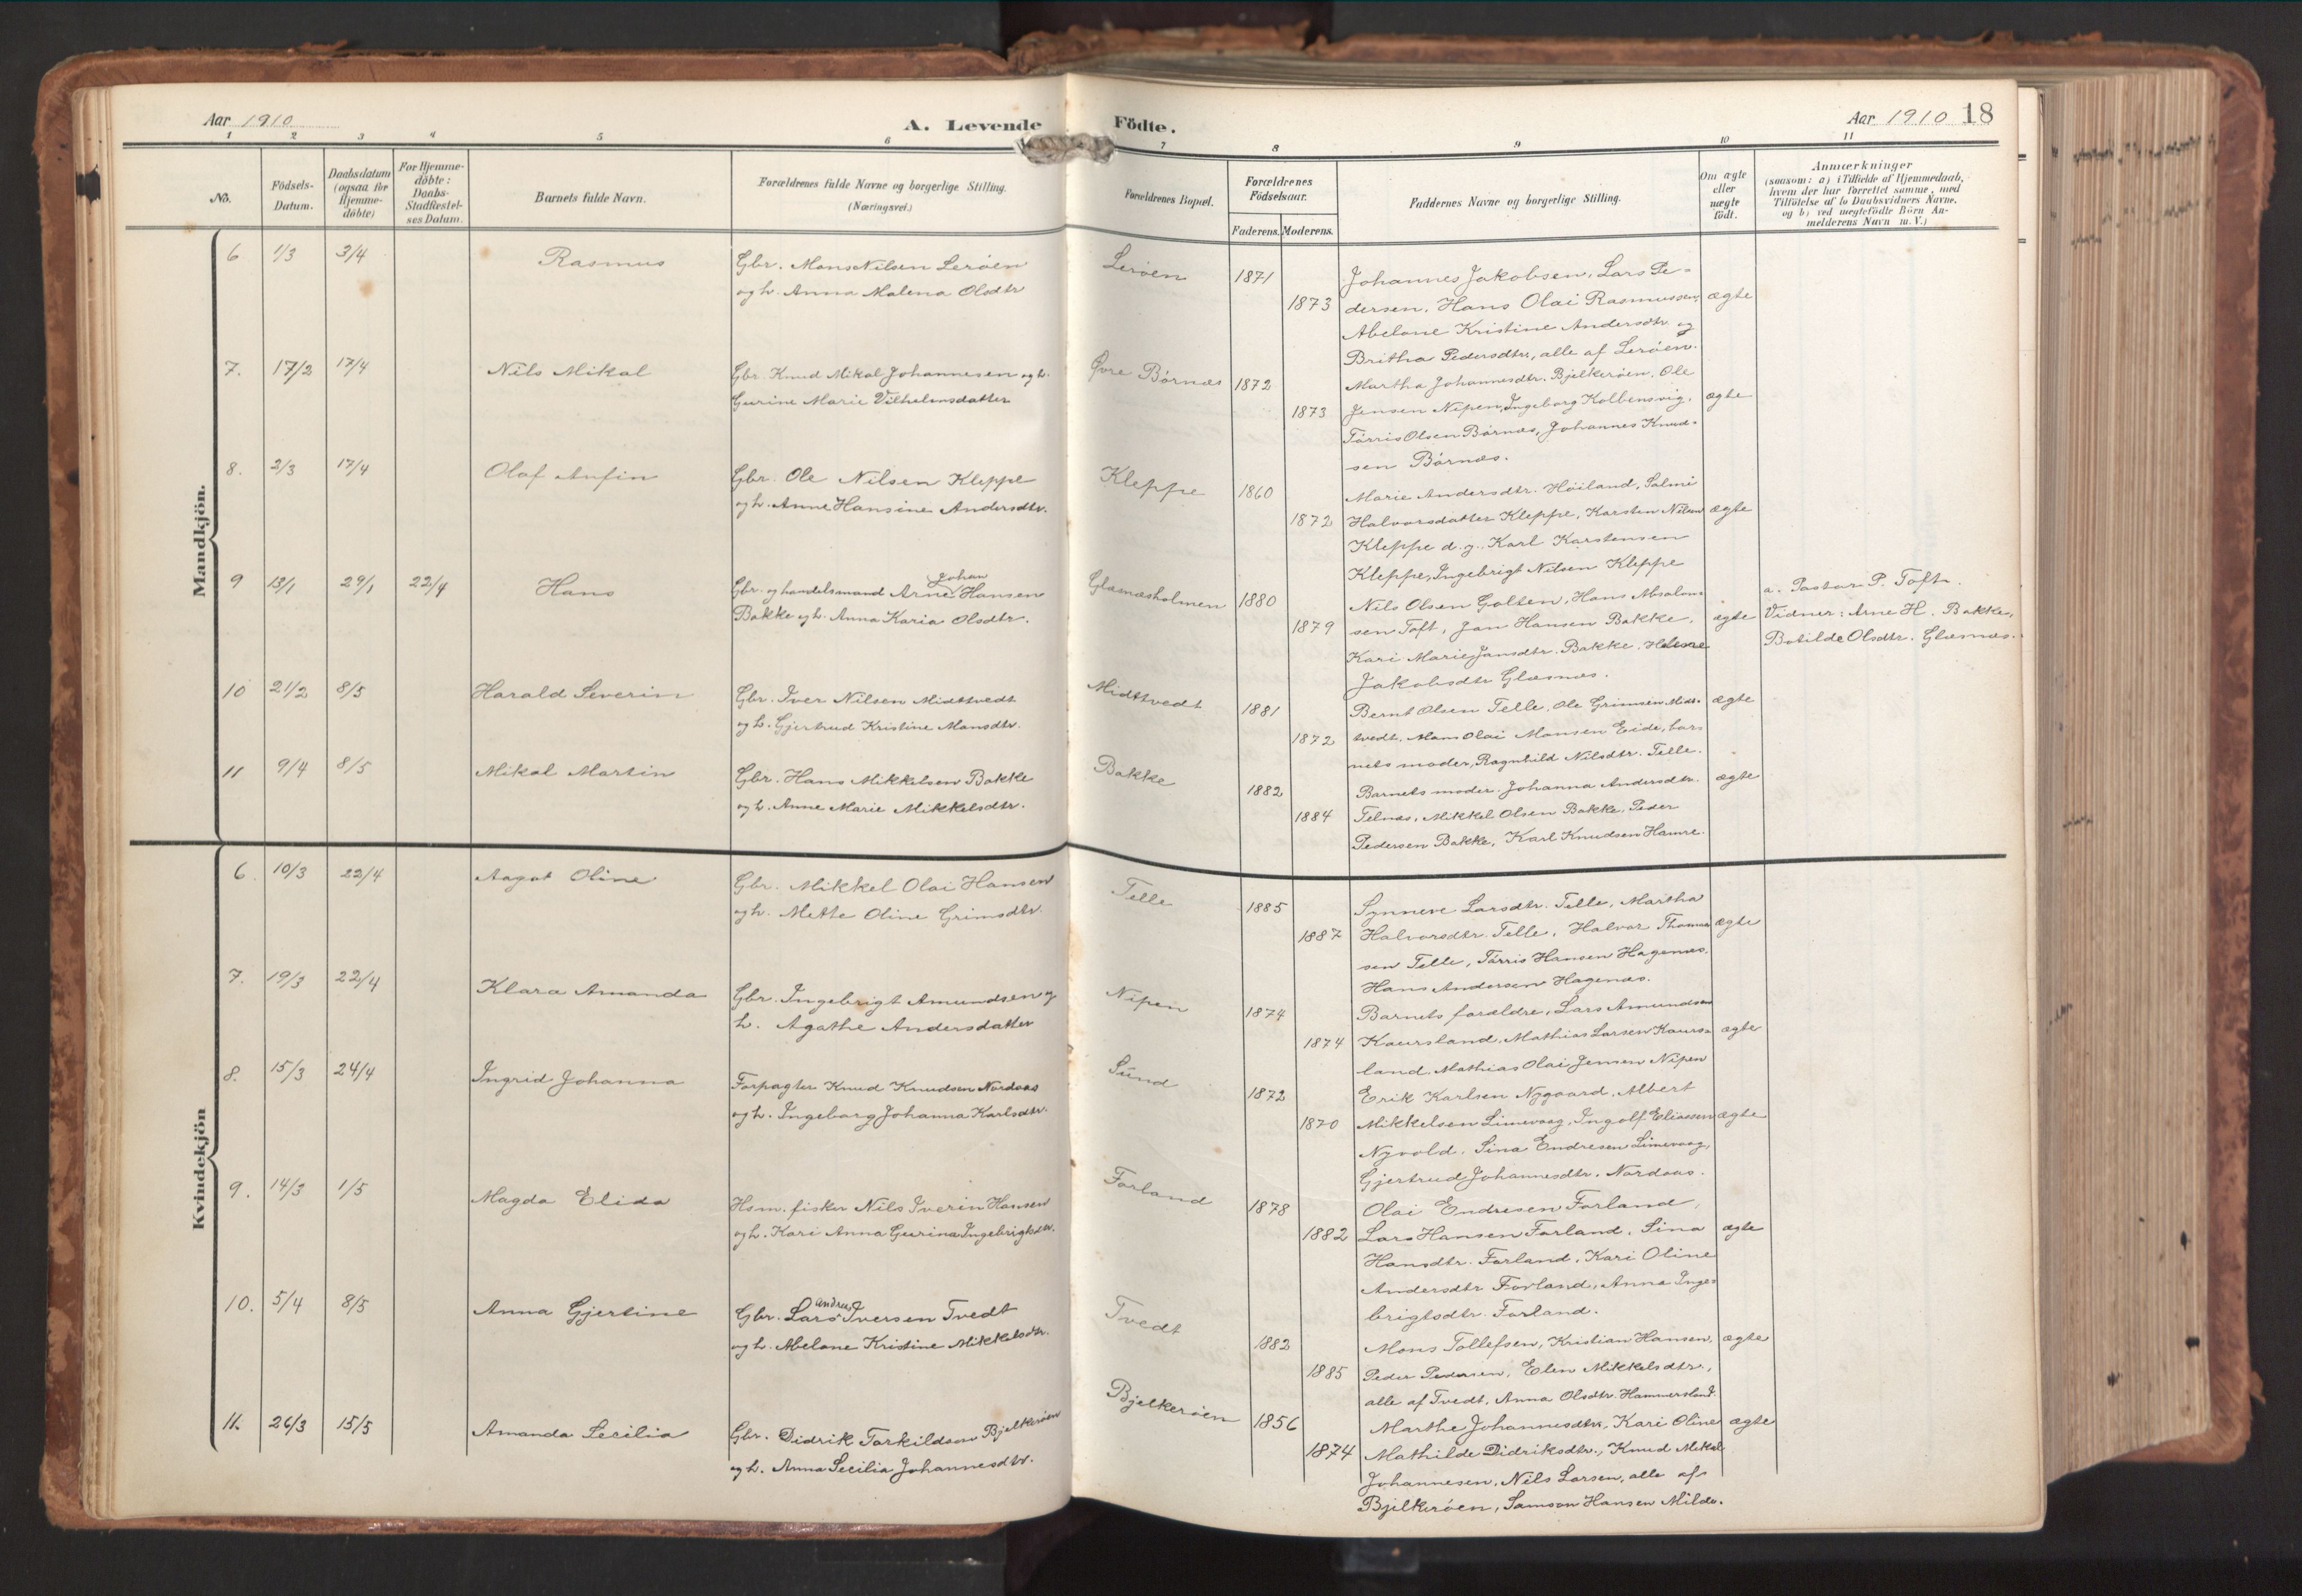 Aar 1910
A. Levende Födte.
Aar 1910 18
1 2 3 4 5 6 7 8 9 10 11
No.
Födsels-
Datum.
Daabsdatum
(ogsaa for
Hjemme-
döbte)
For Hjemme-
döbte:
Daabs-
Stadfæstel-
ses Datum.
Barnets fulde Navn.
Forældrenes fulde Navne og borgerlige Stilling.
(Næringsvei.)
Forældrenes Bopæl.
Forældrenes
Födselsaar.
Faderens. Moderens.
Faddernes Navne og borgerlige Stilling.
Om ægte
eller
uægte
födt.
Anmærkninger
(saasom: a) i Tilfælde af Hjemmedaab,
hvem der har forrettet samme, med
Tilföielse af to Daabsvidners Navne,
og b) ved uægtefödte Börn An-
melderens Navn m. V.)
Mandkjön.
6 1/3 3/4 Rasmus
Gbr. Mons Nilsen Leröen
og h. Anna Malena Olsdtr
Leröen 1871
1873
Johannes Jakobsen, Lars Pe-
dersen, Hans Olai Rasmussen, ægte
Abelone Kristine Andersdtr. og
Britha Pedersdtr, alle af Leröen.
7. 17/2 17/4 Nils Mikal
Gbr. Knud Mikal Johannesen og h.
Gurine Marie Vilhelmsdatter
Øvre Börnæs 1872
1873
Martha Johannesdtr. Bjelkeröen, Ole
Jensen Nipen, Ingeborg Kolbensvig, ægte
Törris Olsen Börnæs, Johannes Knud-
sen Börnæs.
8. 2/3 17/4 Olaf Anfin
Gbr. Ole Nilsen Kleppe
og h. Anne Hansine Andersdtr.
Kleppe 1860
1872
Marie Andersdtr. Höiland, Salmi
Halvorsdatter Kleppe, Karsten Nilsen ægte
Kleppe d. y., Karl Karstensen
Kleppe, Ingebrigt Nilsen Kleppe
9 13/1 29/1 22/4 Hans
Johan
Gbr. og handelsmand Arne Hansen
Bakke og h. Anna Karia Olsdtr.
Glæsnæsholmen 1880
1879
Nils Olsen Golten, Hans Absalon-
sen Toft, Jan Hansen Bakke, ægte
Kari Marie Jansdtr. Bakke, Helene
Jakobsdtr. Glæsnæs.
a. Pastor P. Toft.
Vidner: Arne H. Bakke,
Botilde Olsdtr. Glæsnæs.
10 21/2 8/5 Harald Severin
Gbr. Iver Nilsen Midttvedt
og h. Gjertrud Kristine Monsdtr.
Midttvedt 1881
1872
Bernt Olsen Telle, Ole Grimsen Midt- ægte
tvedt, Mons Olai Monsen Eide, bar-
nets moder, Ragnhild Nilsdtr. Telle.
11 9/4 8/5 Mikal Martin
Gbr. Hans Mikkelsen Bakke
og h. Anne Marie Mikkelsdtr.
Bakke 1882
1884
Barnets moder. Johanna Andersdtr. ægte
Telnæs, Mikkel Olsen Bakke, Peder
Pedersen Bakke, Karl Knudsen Hamre.
Kvindekjön
6. 10/3 22/4 Aagot Oline
Gbr. Mikkel Olai Hansen
og h. Mette Oline Grimsdtr.
Telle 1885
1887
Synneve Larsdtr. Telle, Martha
Halvorsdtr. Telle, Halvor Thomas- ægte
sen Telle, Törris Hansen Hagenæs,
Hans Andersen Hagenæs.
7. 19/3 22/4 Klara Amanda
Gbr. Ingebrigt Amundsen og
h. Agathe Andersdatter
Nipen 1874
1874
Barnets forældre, Lars Amundsen
Kaursland, Mathias Larsen Kaurs- ægte
land, Mathias Olai Jensen Nipen
8. 15/3 24/4 Ingrid Johanna
Forpagter Knud Knudsen Nordaas
og h. Ingeborg Johanna Karlsdtr.
Sund 1872
1870
Erik Karlsen Nygaard, Albert
Mikkelsen Limevaag, Ingolf Eliassen ægte
Nyvold, Sina Endresen Limevaag,
Gjertrud Johannesdtr. Nordaas.
9. 14/3 1/5 Magda Elida
Hsm. fisker Nils Iverin Hansen
og h. Kari Anna Gurina Ingebrigtsdtr.
Forland 1878
1882
Olai Endresen Forland,
Lars Hansen Forland, Sina ægte
Hansdtr. Forland, Kari Oline
Andersdtr Forland, Anna Inge-
brigtsdtr. Forland.
10. 5/4 8/5 Anna Gjertine
Andreas
Gbr. Lars Iversen Tvedt
og h. Abelone Kristine Mikkelsdtr.
Tvedt 1882
1885
Mons Tollefsen, Kristian Hansen, ægte
Peder Pedersen, Elen Mikkelsdtr.,
alle af Tvedt, Anna Olsdtr. Hammersland.
11. 26/3 15/5 Amanda Secilia
Gbr. Didrik Torkildsen Bjelkeröen
og h. Anna Secilia Johannesdtr.
Bjelkeröen 1856
1874
Marthe Johannesdtr, Kari Oline ægte
Mathilde Didriksdtr., Knud Mikal
Johannesen, Nils Larsen, alle af
Bjelkeröen, Samson Hansen Milde.